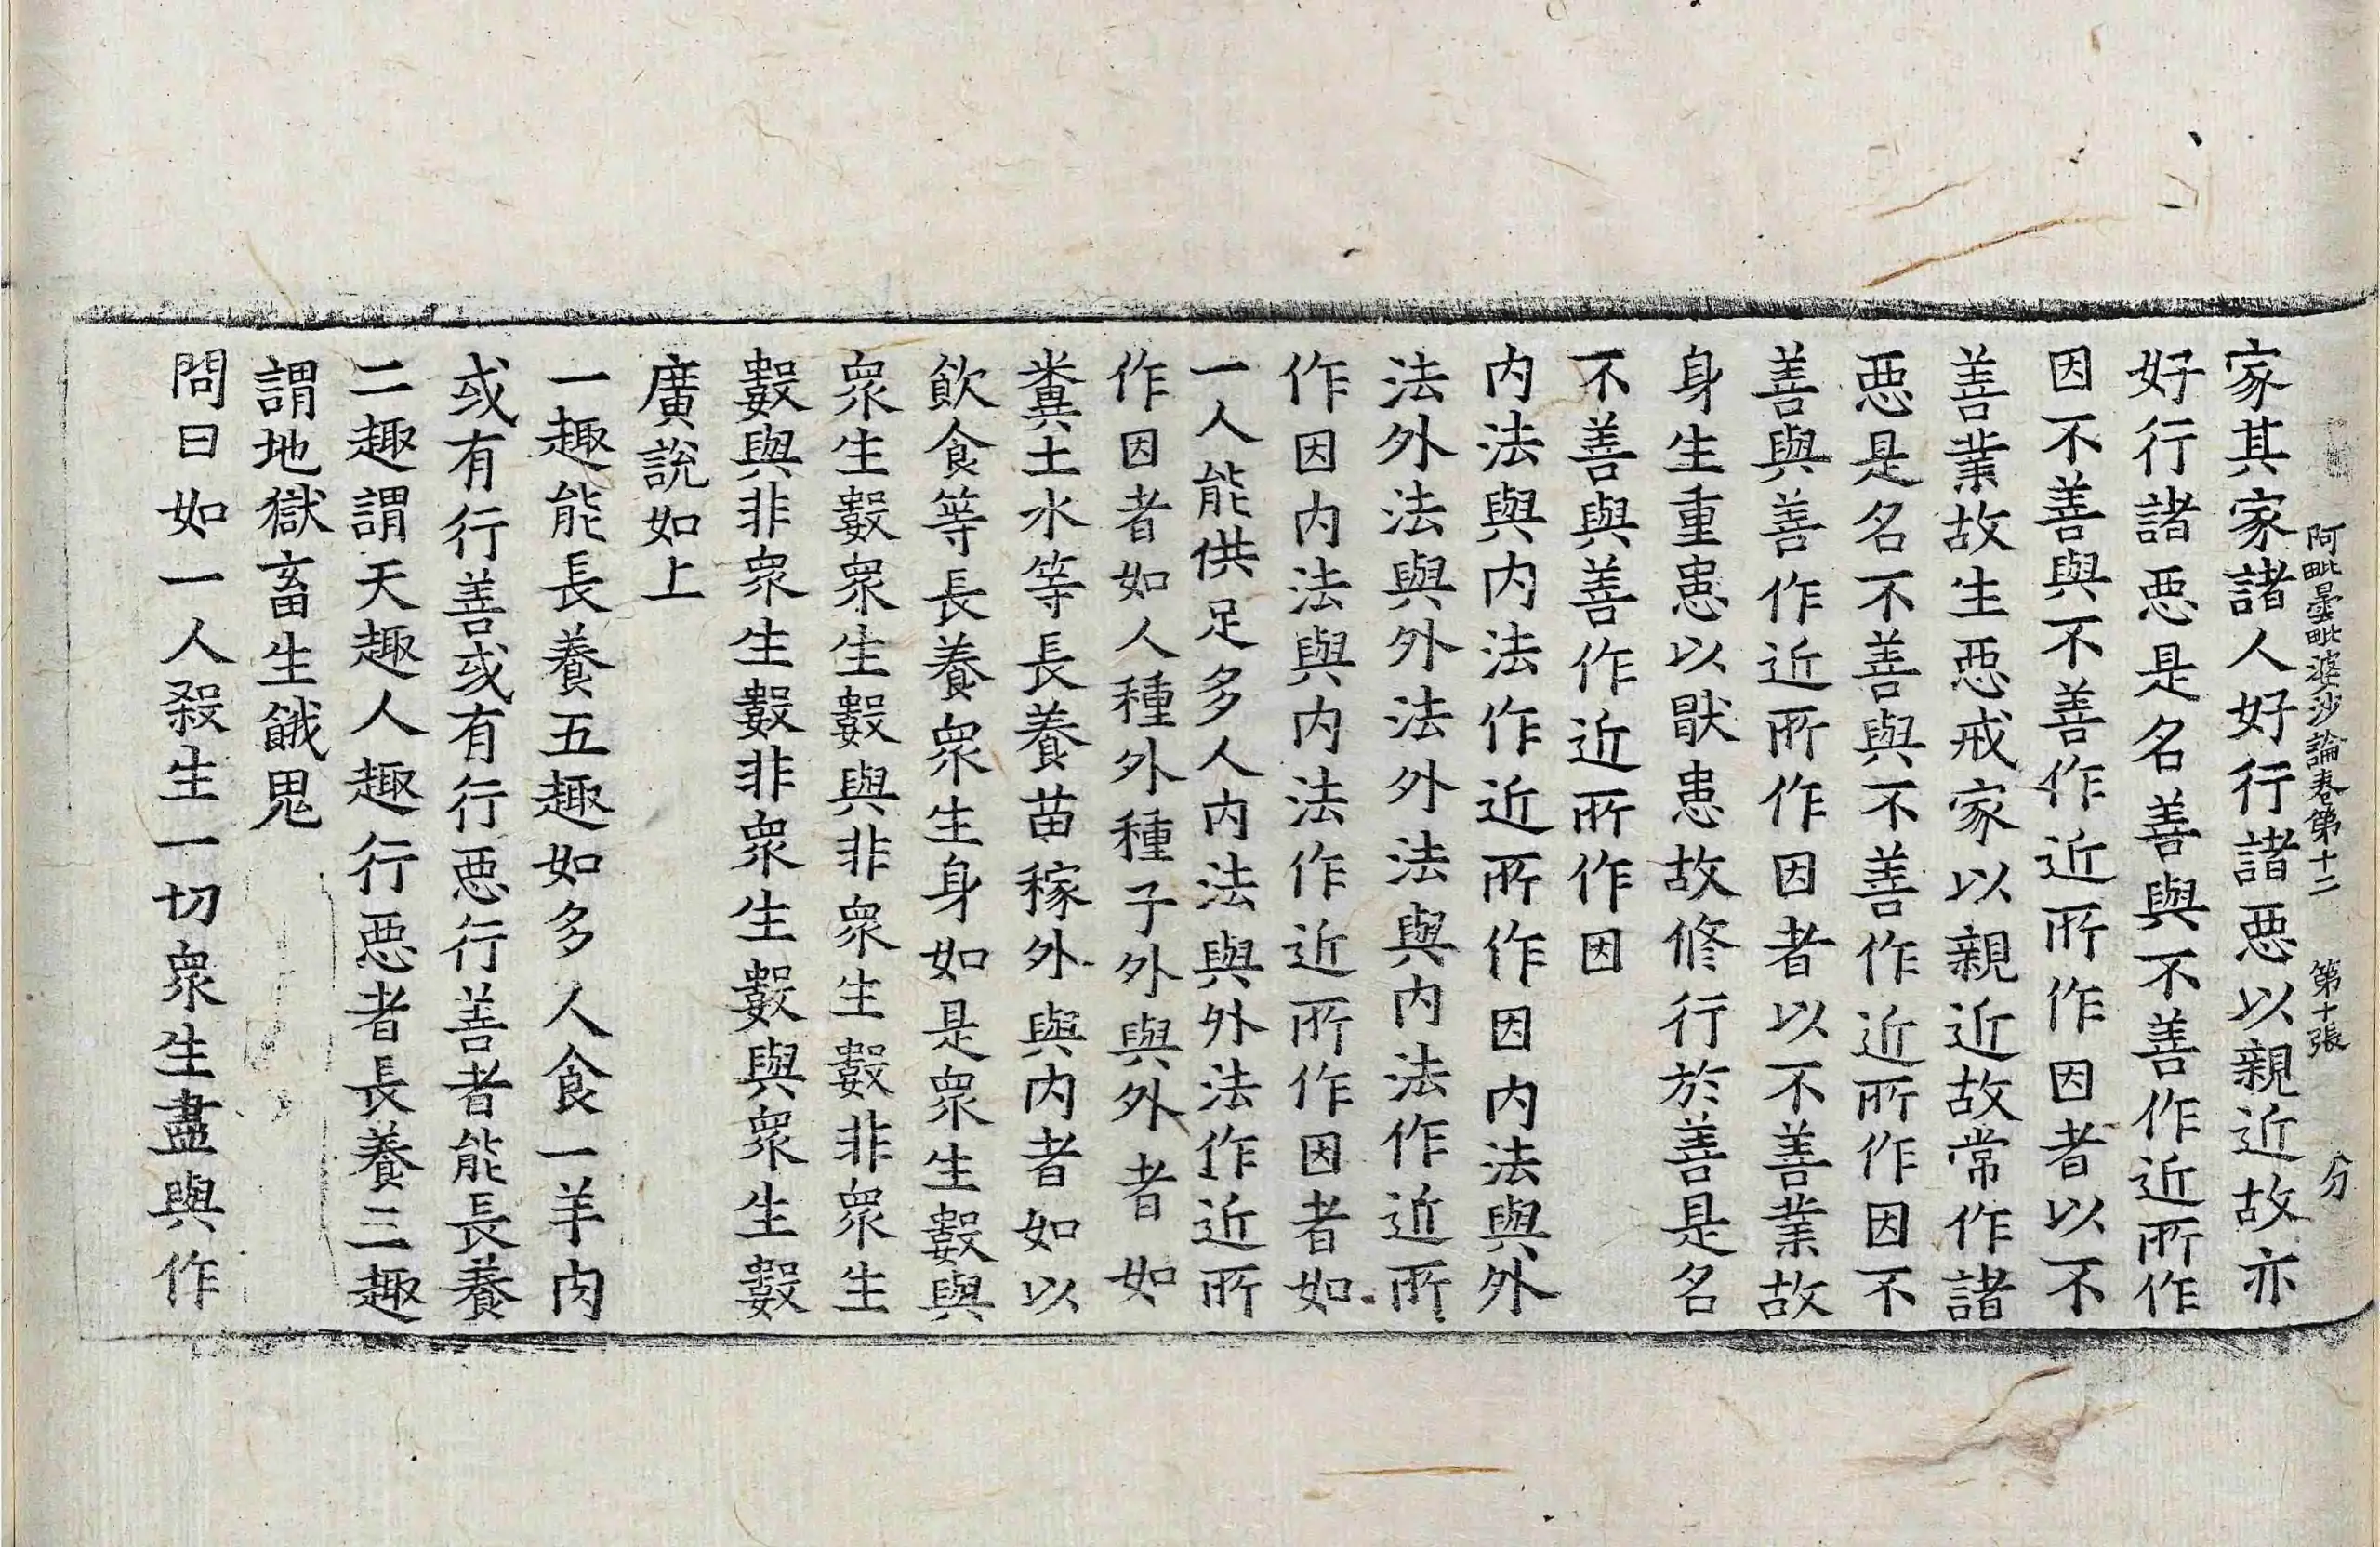 阿毗曇毗婆沙論卷第十二 第十張 分
家其家諸人好行諸惡以親近故亦
好行諸惡是名善與不善作近所作
因不善與不善作近所作因者以不
善業故生惡戒家以親近故常作諸
惡是名不善與不善作近所作因不
善與善作近所作因者以不善業故
身生重患以猒患故修行於善是名
不善與善作近所作因
内法與内法作近所作因内法與外
法外法與外法外法與内法作近所
作因内法與内法作近所作因者如
一人能供足多人内法與外法作近所
作因者如人種外種子外與外者如
糞土水等長養苗稼外與内者如以
飲食等長養衆生身如是衆生數與
衆生數衆生數與非衆生數非衆生
數與非衆生數非衆生數與衆生數
廣說如上
一趣能長養五趣如多人食一羊肉
或有行善或有行惡行善者能長養
二趣謂天趣人趣行惡者長養三趣
謂地獄畜生餓鬼
問曰如一人殺生一切衆生盡與作